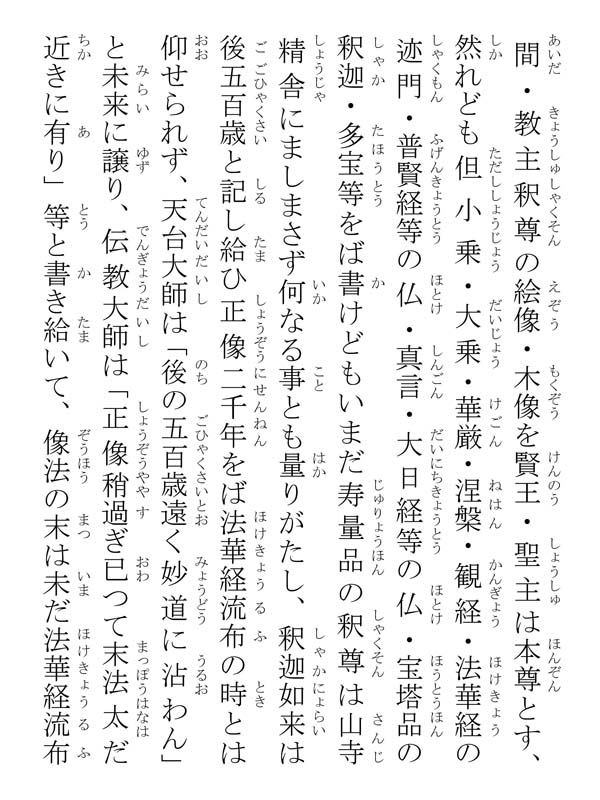 間・教主釈尊の絵像・木像を賢王・聖主は本尊とす、
然れども但小乗・大乗・華厳・涅槃・観経・法華経の
迹門・普賢経等の仏・真言・大日経等の仏・宝塔品の
釈迦・多宝等をば書けどもいまだ寿量品の釈尊は山寺
精舎にましまさず何なる事とも量りがたし、釈迦如来は
後五百歳と記し給ひ正像二千年をば法華経流布の時とは
仰せられず、天台大師は「後の五百歳遠く妙道に沾わん」
と未来に譲り、伝教大師は「正像稍過ぎ已つて末法太だ
近きに有り」等と書き給いて、像法の末は未だ法華経流布